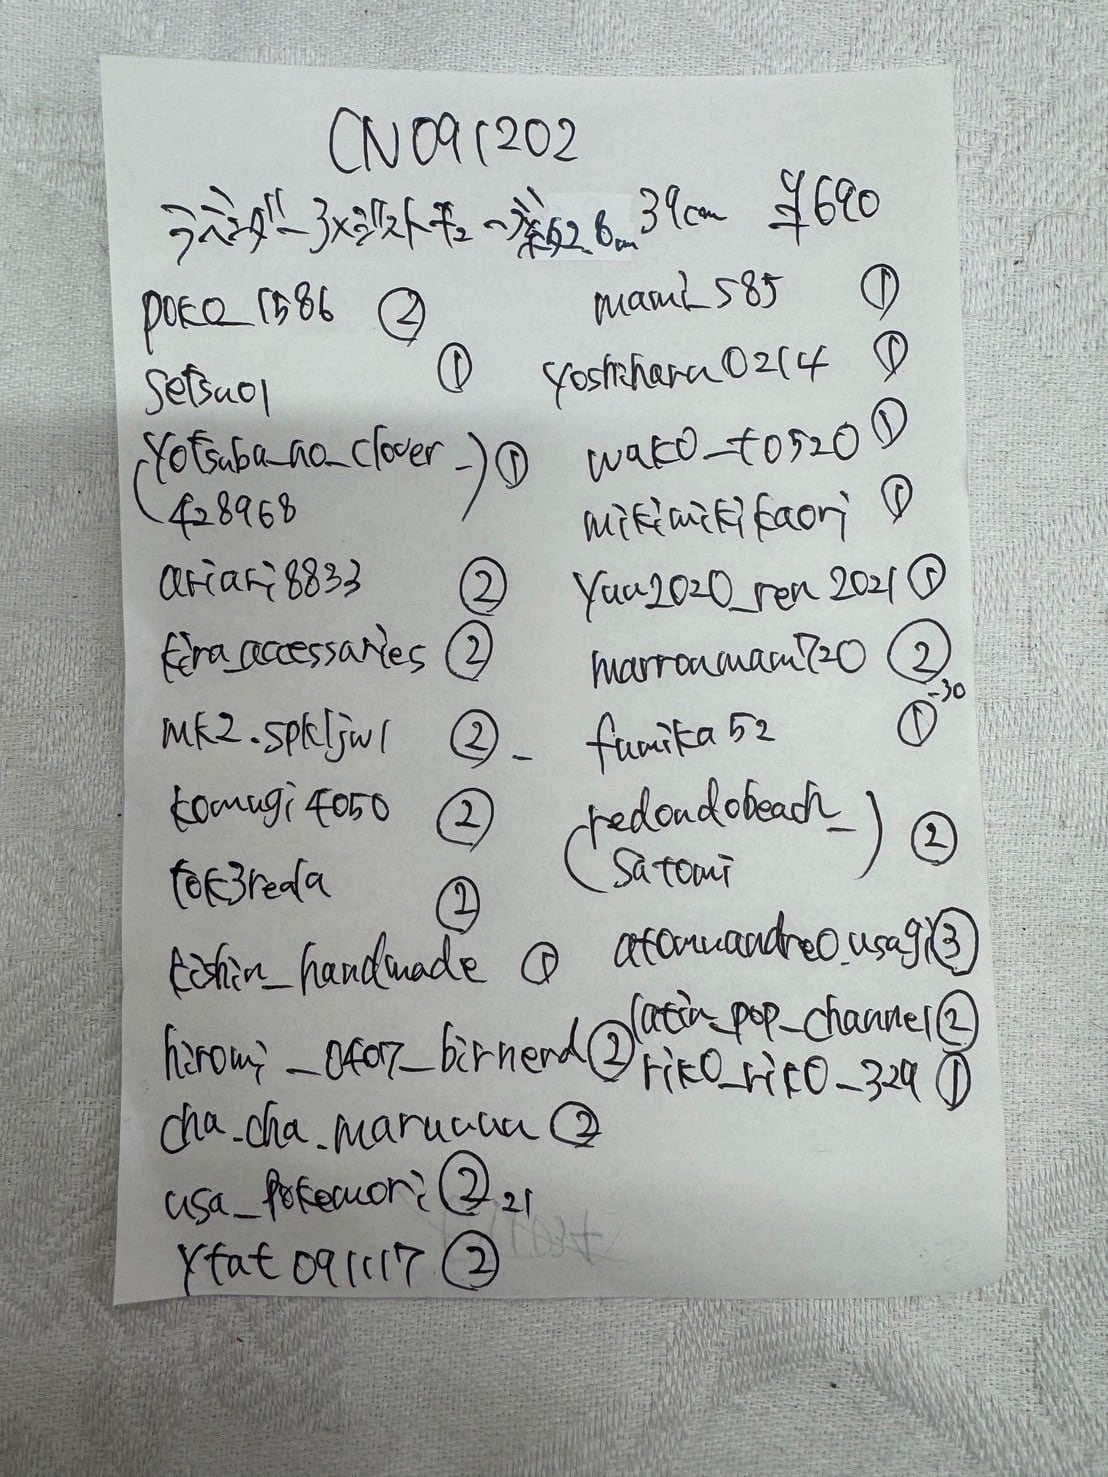 CN091202
ラベンダー 3× 39cm ¥690
poko_1586 ②
setsu01 ①
(yotsuba_no_clover_) ①
428968
ariari8833 ②
kira_accessaries ②
mk2.spkljwl ② -
komugi4050 ②
tok3reda ②
kishin_handmade ①
hiromi_0407_birnend ②
cha.cha.maruuuu ②
usa_pokemori ② 21
ytat091117 ②
mami_585 ①
yoshiharu0214 ①
wako_t0520 ①
mikimikikaori ①
yuu2020_ren2021 ①
marronmam720 ②
-30
fumika52 ①
(redondobeach_) ②
satomi
atomuandreo.usagi ③
latin_pop_channel ②
riko_riko_329 ①